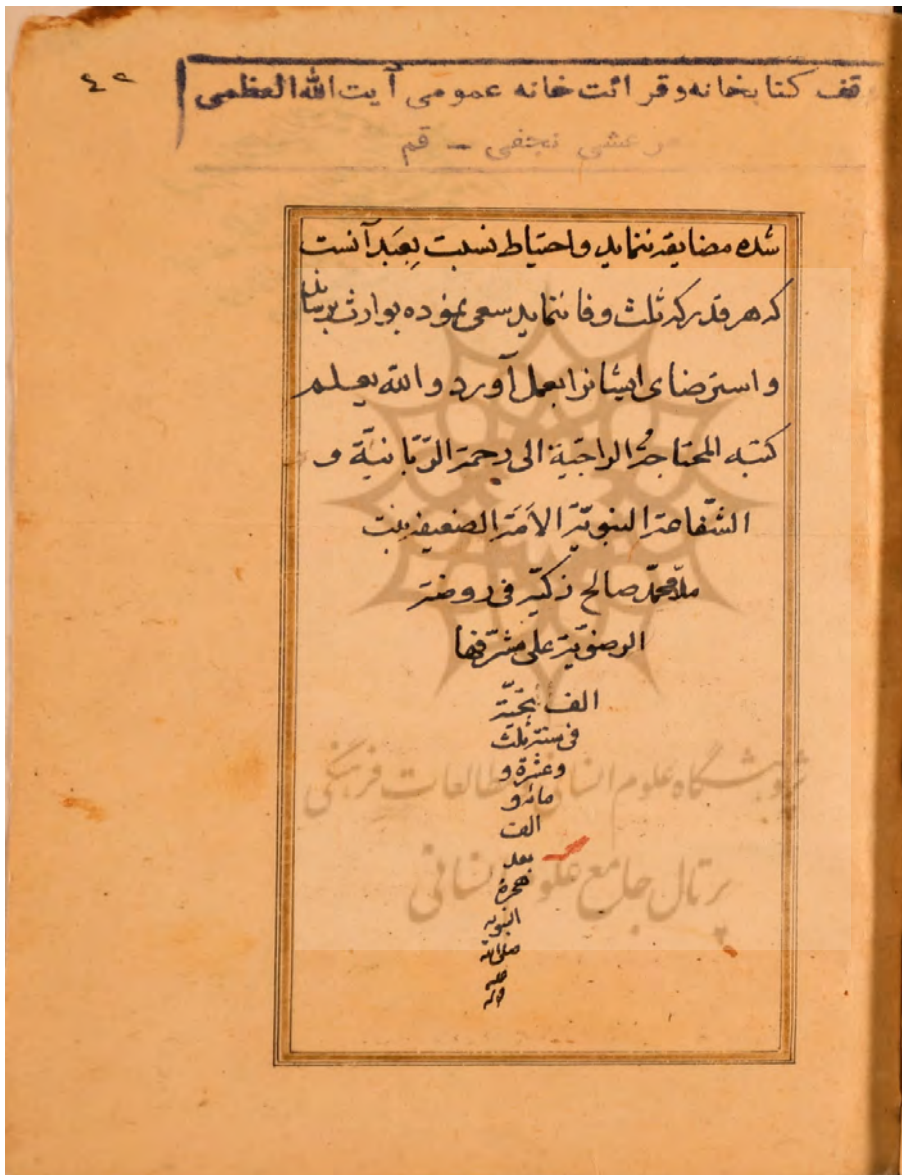 ٤٢
وقف کتابخانه و قرائت خانه عمومی آیت الله العظمی
مرعشی نجفی - قم
شده مضایقه ننماید و احتیاط نسبت بعبد آنست
که هر قدر که ثلث وفا ننماید سعی نموده بوارث برساند
و استرضای ایشانرا بعمل آورد و الله یعلم
کتبه المحتاجة الراجیة الی رحمة الربّانیّة و
الشّفاعة النبویّة الاَمَة الضعیفة بنت
ملّا محمّد صالح ذکیّة فی روضة
الرضویّة علی مشرّفها
الف تحیّة
فی سنة ثلث
و عشرة و
مائة و
الف
بعد
هجرة
النبویة
صلی الله
علیه
و آله
پژوهشگاه علوم انسانی و مطالعات فرهنگی
پرتال جامع علوم انسانی